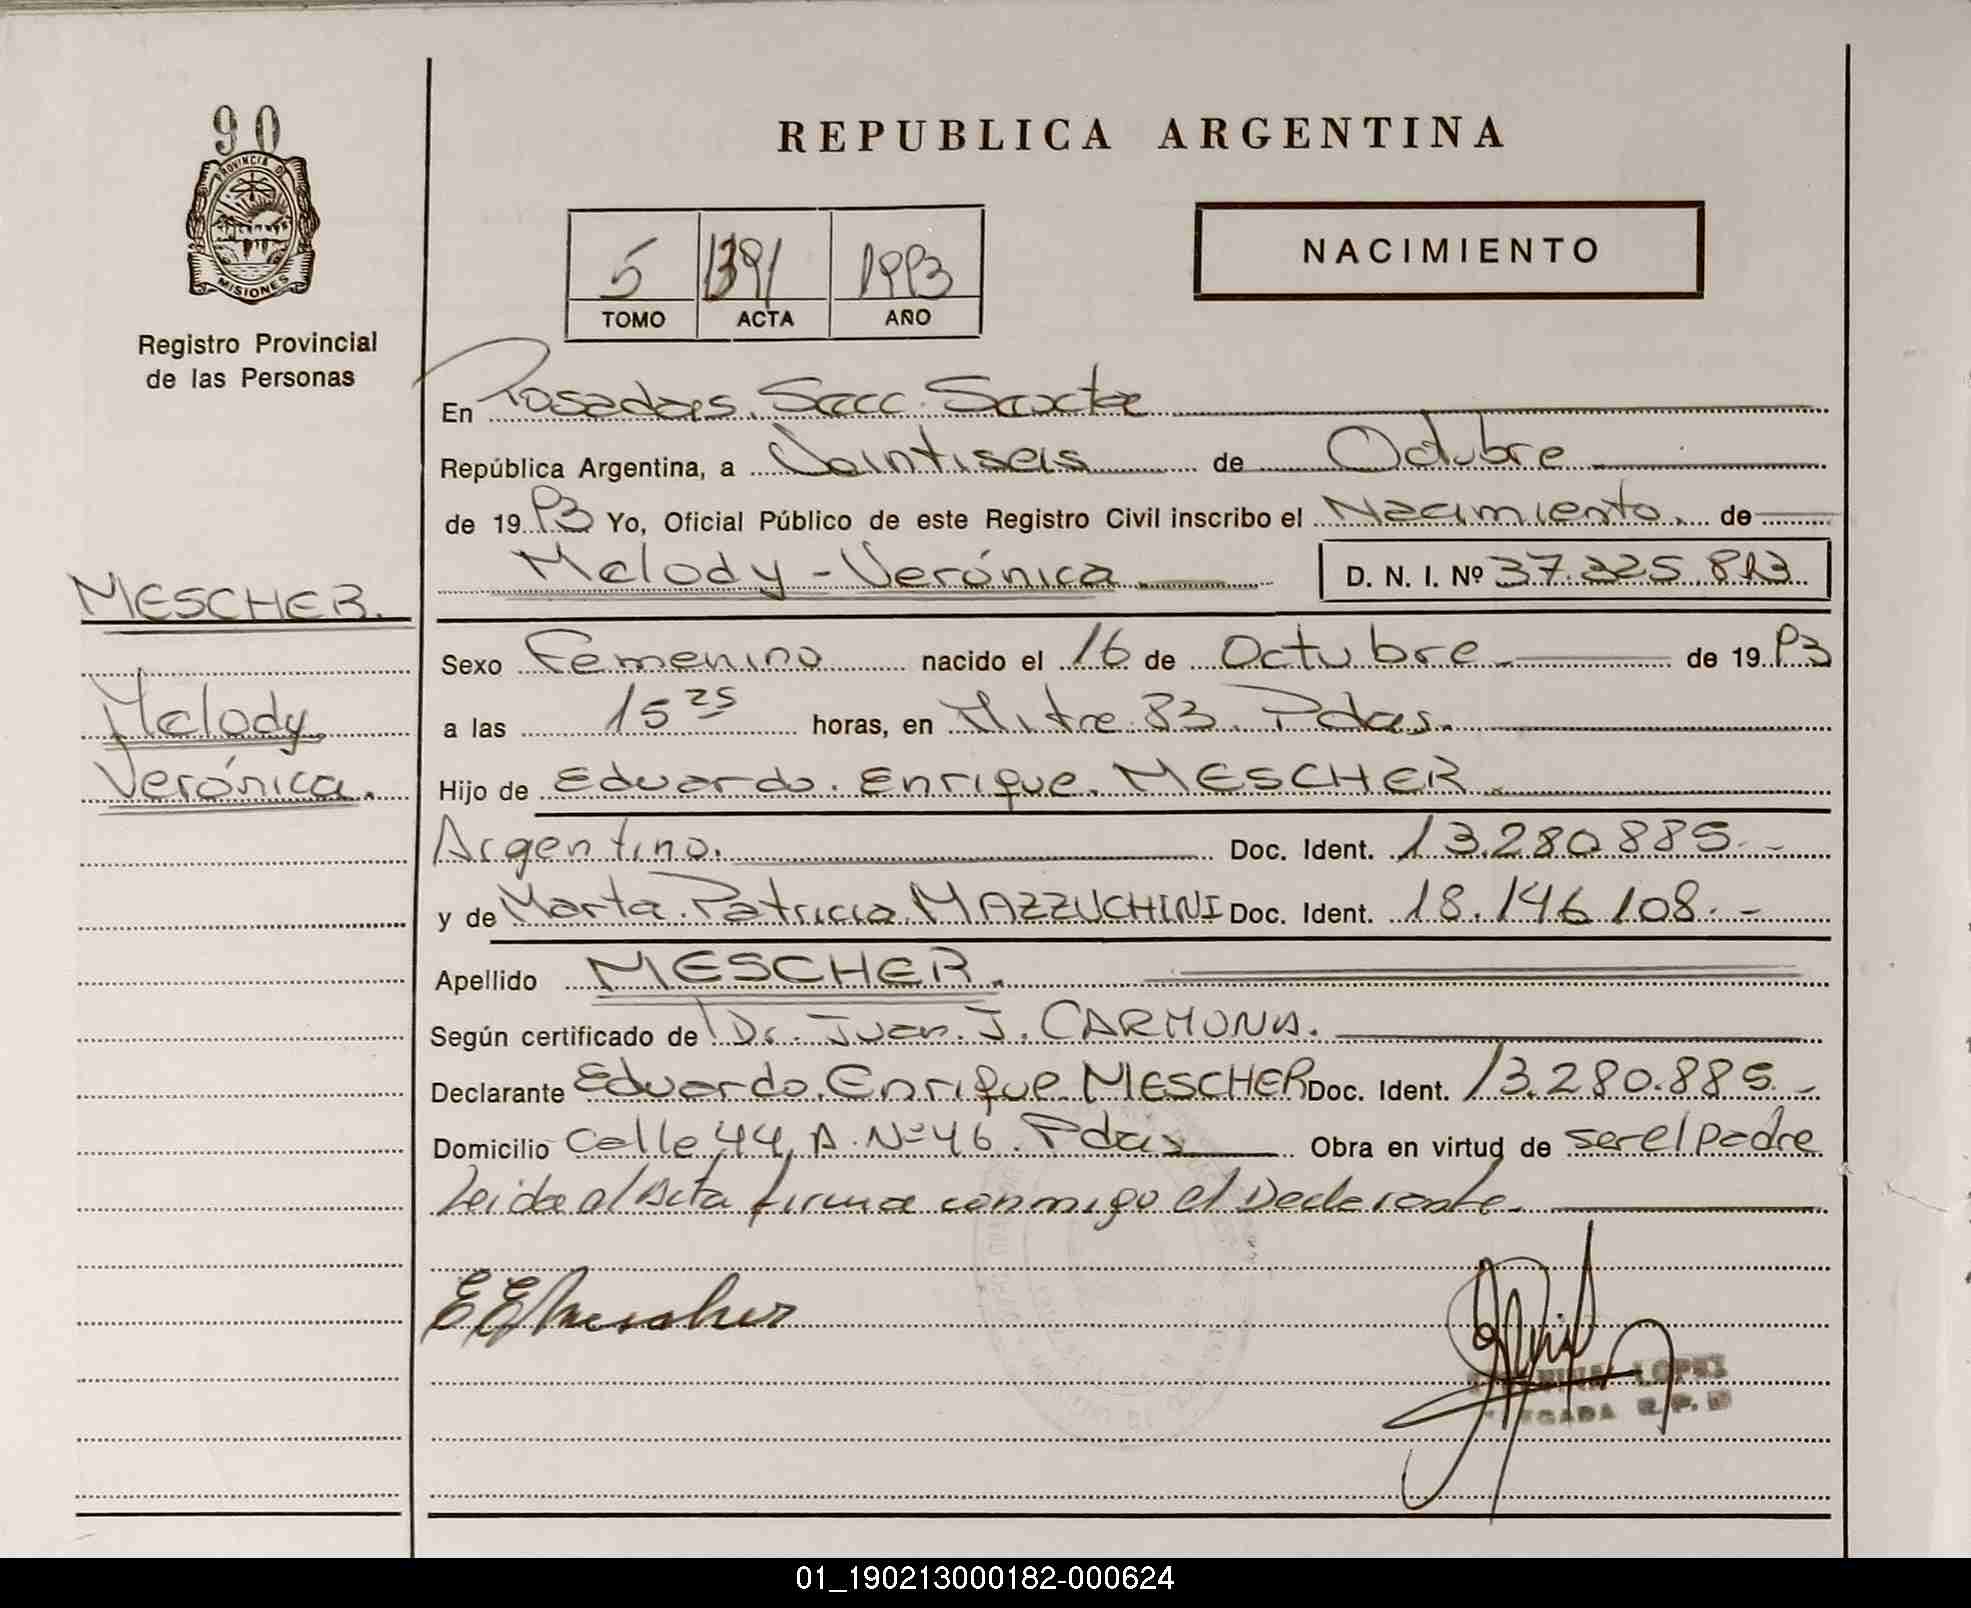 90
PROVINCIA DE
MISIONES
Registro Provincial
de las Personas
MESCHER.
Melody
Verónica.
REPUBLICA ARGENTINA
NACIMIENTO
5 1391 1993
TOMO ACTA AÑO
En Posadas. Secc. Sexta
República Argentina, a Veintiseis de Octubre
de 1993 Yo, Oficial Público de este Registro Civil inscribo el Nacimiento. de
Melody - Verónica D. N. I. Nº 37.325.813
Sexo Femenino nacido el 16 de Octubre de 1993
a las 15 25 horas, en Mitre 83. Pdas.
Hijo de Eduardo. Enrique. MESCHER.
Argentino. Doc. Ident. 13.280.885.-
y de Marta. Patricia. MAZZUCHINI Doc. Ident. 18.146.108.-
Apellido MESCHER.
Según certificado de Dr. Juan. J. CARMONA.
Declarante Eduardo. Enrique. MESCHER Doc. Ident. 13.280.885.-
Domicilio Calle 44, A. Nº 46. Pdas Obra en virtud de ser el padre
Leida el Acta firma conmigo el Declarante.
E E Mescher
LOPEZ
R. P.
01_190213000182-000624